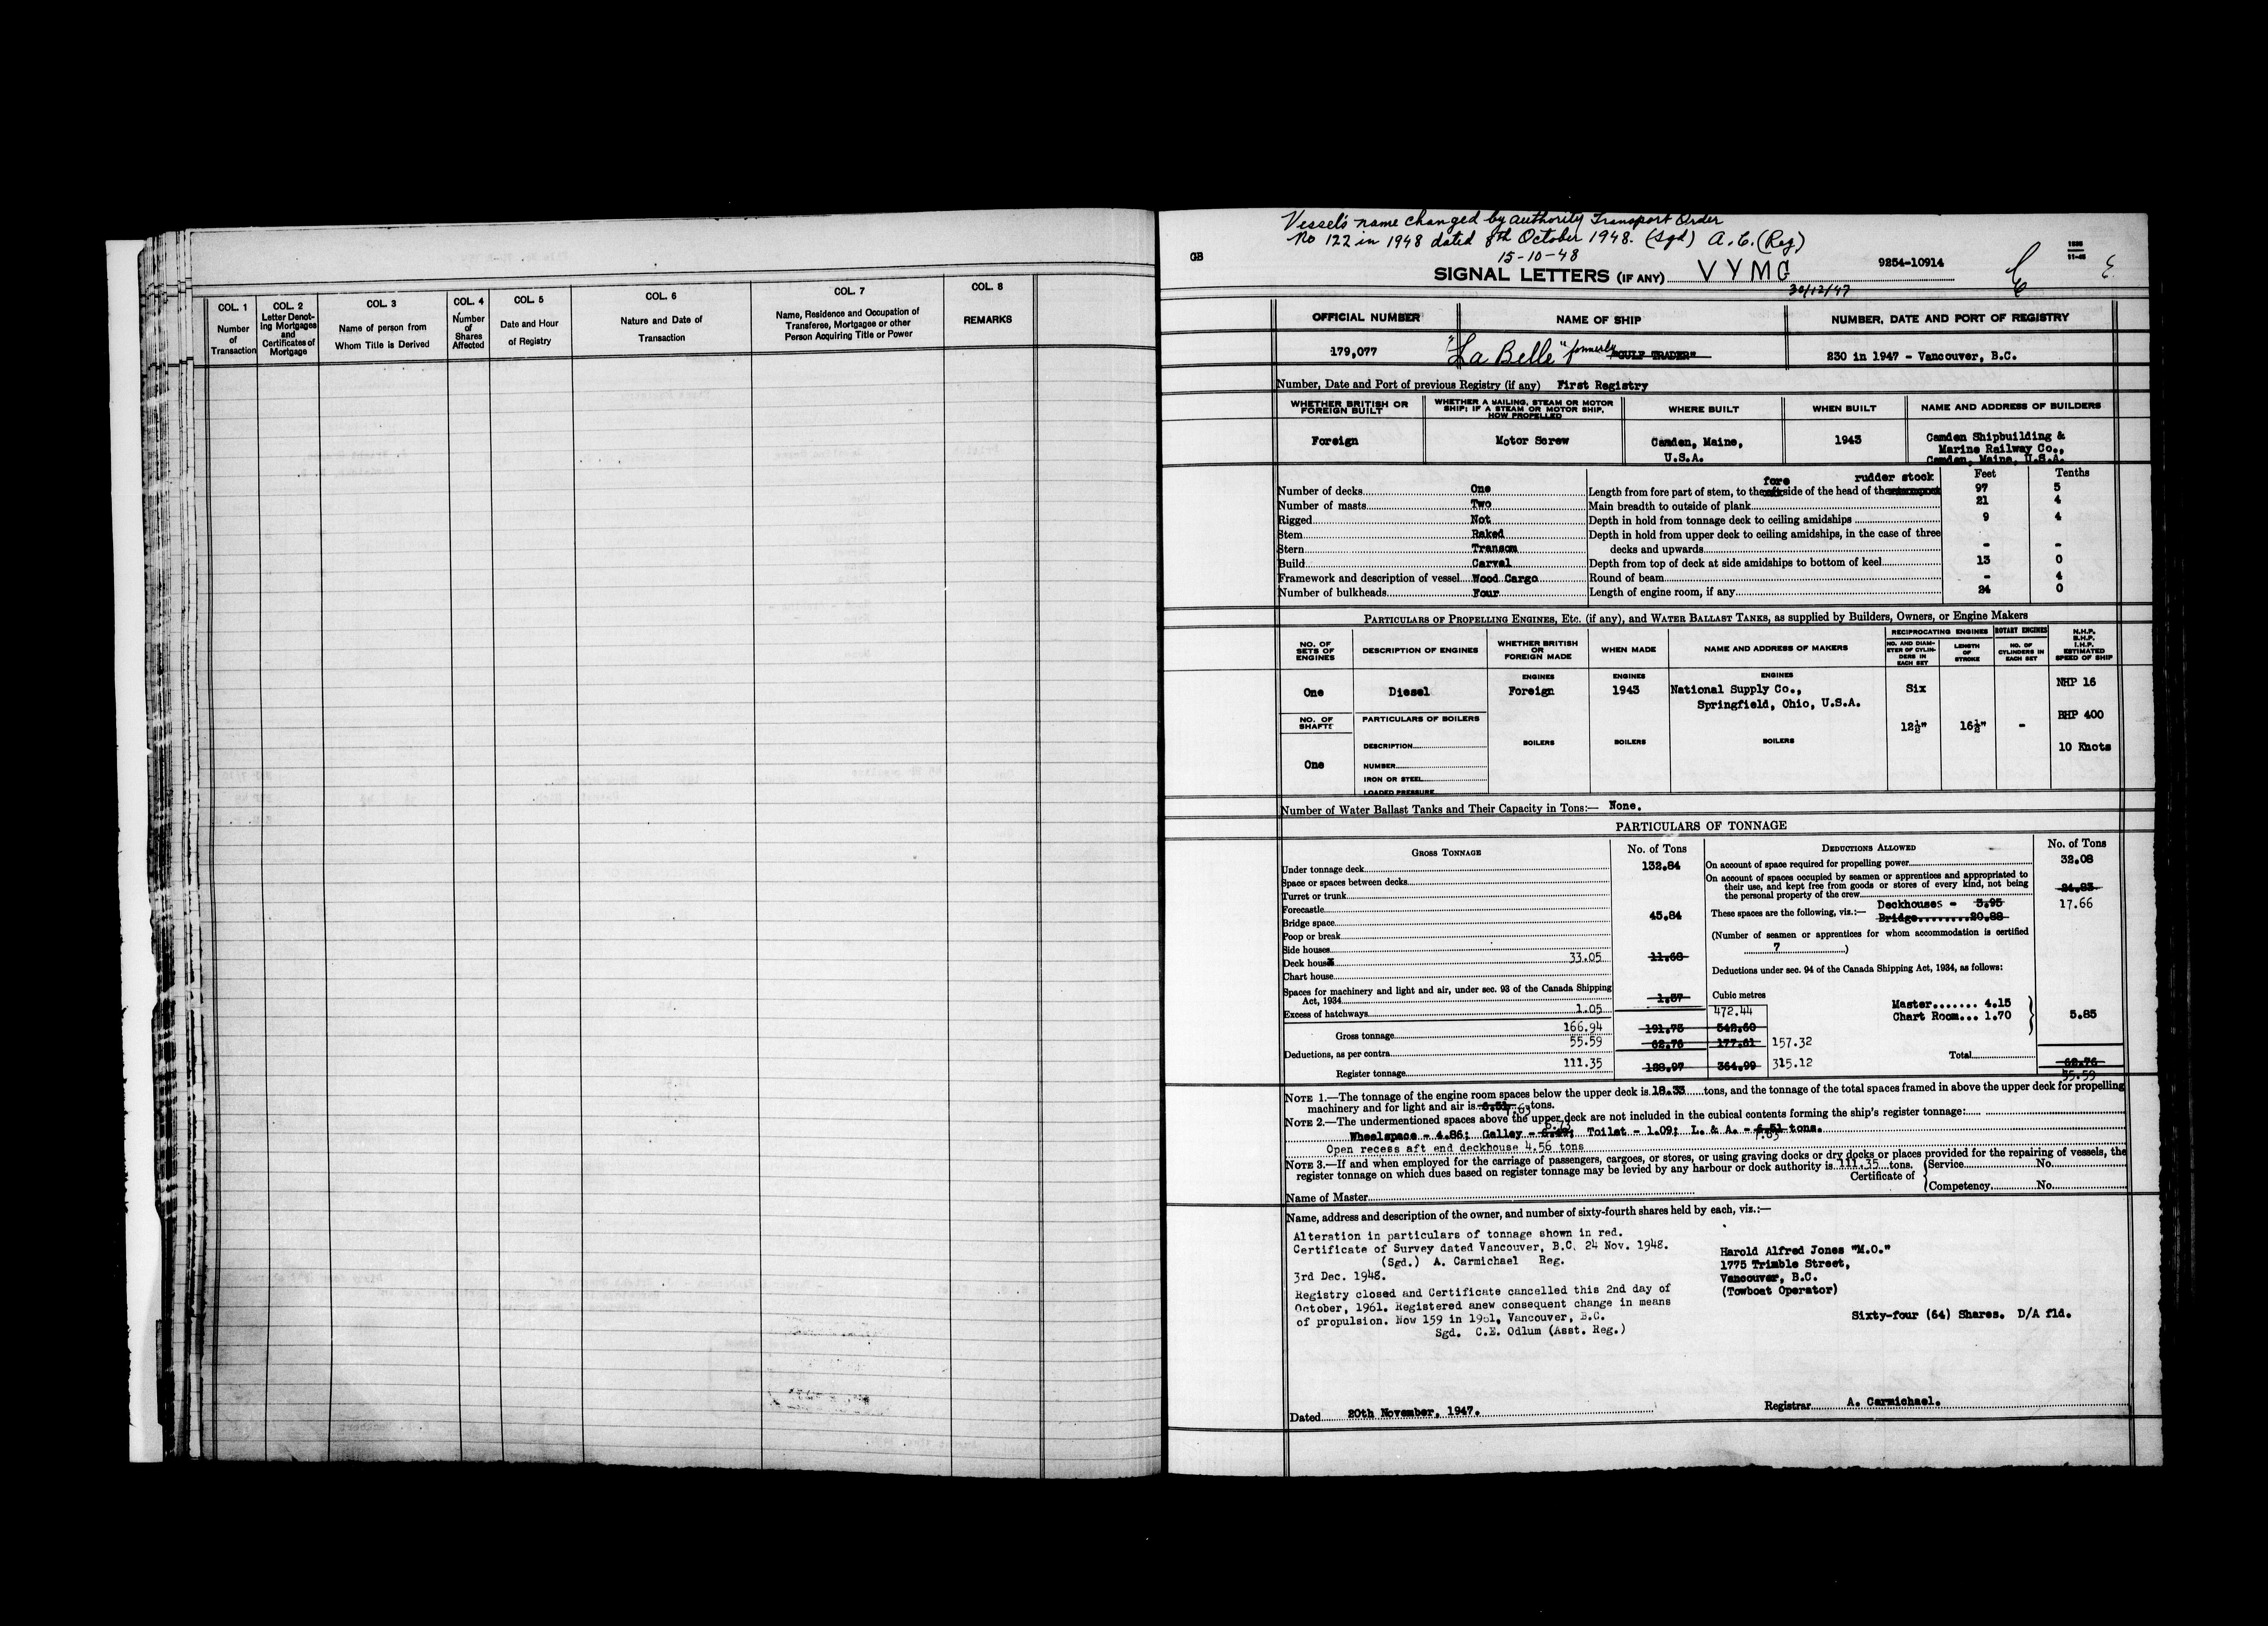 COL. 1
Number
of
Transaction
COL. 2
Letter Denot-
ing Mortgages
and
Certificates of
Mortgage
COL. 3
Name of person from
Whom Title is Derived
COL. 4
Number
of
Shares
Affected
COL. 5
Date and Hour
of Registry
COL. 6
Nature and Date of
Transaction
COL. 7
Name, Residence and Occupation of
Transferee, Mortgagee or other
Person Acquiring Title or Power
COL. 8
REMARKS
Vessel's name changed by authority Transport Order
No 122 in 1948 dated 8th October 1948. (Sgd) A. C. (Reg)
15-10-48
GB
SIGNAL LETTERS (IF ANY) VYMC 9254-10914
30/12/47
OFFICIAL NUMBER NAME OF SHIP NUMBER, DATE AND PORT OF REGISTRY
179,077 "La Belle" formerly "GULF TRADER" 230 in 1947 - Vancouver, B.C.
Number, Date and Port of previous Registry (if any) First Registry
WHETHER BRITISH OR
FOREIGN BUILT
WHETHER A SAILING, STEAM OR MOTOR
SHIP; IF A STEAM OR MOTOR SHIP,
HOW PROPELLED
WHERE BUILT WHEN BUILT NAME AND ADDRESS OF BUILDERS
Foreign Motor Screw Camden, Maine,
U.S.A.
1943
Camden Shipbuilding &
Marine Railway Co.,
Camden, Maine, U.S.A.
Feet Tenths
fore rudder stock
Number of decks One Length from fore part of stem, to the aft side of the head of the sternpost 97 5
Number of masts Two Main breadth to outside of plank 21 4
Rigged Not Depth in hold from tonnage deck to ceiling amidships 9 4
Stem Raked Depth in hold from upper deck to ceiling amidships, in the case of three
Stern Transom decks and upwards - -
Build Carval Depth from top of deck at side amidships to bottom of keel 13 0
Framework and description of vessel Wood Cargo Round of beam - 4
Number of bulkheads Four Length of engine room, if any 24 0
PARTICULARS OF PROPELLING ENGINES, ETC. (if any), and WATER BALLAST TANKS, as supplied by Builders, Owners, or Engine Makers
NO. OF
SETS OF
ENGINES
DESCRIPTION OF ENGINES
WHETHER BRITISH
OR
FOREIGN MADE
WHEN MADE
NAME AND ADDRESS OF MAKERS
RECIPROCATING ENGINES
NO. AND DIAM-
ETER OF CYLIN-
DERS IN
EACH SET
LENGTH
OF
STROKE
ROTARY ENGINES
NO. OF
CYLINDERS IN
EACH SET
N.H.P.
B.H.P.
I.H.P.
ESTIMATED
SPEED OF SHIP
ENGINES ENGINES ENGINES
One Diesel Foreign 1943 National Supply Co., Six NHP 16
Springfield, Ohio, U.S.A.
NO. OF
SHAFTS
PARTICULARS OF BOILERS
12½" 16½" - BHP 400
DESCRIPTION BOILERS BOILERS BOILERS 10 Knots
One
NUMBER
IRON OR STEEL
LOADED PRESSURE
Number of Water Ballast Tanks and Their Capacity in Tons:— None.
PARTICULARS OF TONNAGE
GROSS TONNAGE No. of Tons DEDUCTIONS ALLOWED No. of Tons
Under tonnage deck 132.84
Space or spaces between decks
Turret or trunk
Forecastle
Bridge space 45.84
Poop or break
Side houses
Deck house 33.05 11.68
Chart house
Spaces for machinery and light and air, under sec. 93 of the Canada Shipping
Act, 1934 1.37
Excess of hatchways 1.05
Gross tonnage 166.94 191.73
Deductions, as per contra 55.59 62.76
Register tonnage 111.35 128.97
Cubic metres
472.44
542.60
177.61 157.32
364.99 315.12
On account of space required for propelling power 32.08
On account of spaces occupied by seamen or apprentices and appropriated to
their use, and kept free from goods or stores of every kind, not being
the personal property of the crew 24.83
17.66
These spaces are the following, viz.:— Deckhouses - 3.95
Bridge 20.88
(Number of seamen or apprentices for whom accommodation is certified
7 )
Deductions under sec. 94 of the Canada Shipping Act, 1934, as follows:
Master....... 4.15
Chart Room... 1.70 5.85
Total 62.76
55.59
NOTE 1.—The tonnage of the engine room spaces below the upper deck is 18.33 tons, and the tonnage of the total spaces framed in above the upper deck for propelling
machinery and for light and air is 6.51 7.63 tons.
NOTE 2.—The undermentioned spaces above the upper deck are not included in the cubical contents forming the ship's register tonnage:
Wheelspace - 4.86; Galley - Toilet - 1.09; L. & A. - 6.51 tons.
7.63
Open recess aft end deckhouse 4.56 tons
NOTE 3.—If and when employed for the carriage of passengers, cargoes, or stores, or using graving docks or dry docks or places provided for the repairing of vessels, the
register tonnage on which dues based on register tonnage may be levied by any harbour or dock authority is 111.35 tons.
Certificate of
Service No.
Competency No.
Name of Master
Name, address and description of the owner, and number of sixty-fourth shares held by each, viz.:—
Alteration in particulars of tonnage shown in red.
Certificate of Survey dated Vancouver, B.C. 24 Nov. 1948.
(Sgd.) A. Carmichael Reg.
3rd Dec. 1948.
Registry closed and Certificate cancelled this 2nd day of
October, 1961. Registered anew consequent change in means
of propulsion. Now 159 in 1961, Vancouver, B.C.
Sgd. C.E. Odlum (Asst. Reg.)
Harold Alfred Jones "M.O."
1775 Trimble Street,
Vancouver, B.C.
(Towboat Operator)
Sixty-four (64) Shares. D/A fld.
Dated 20th November, 1947. Registrar A. Carmichael.